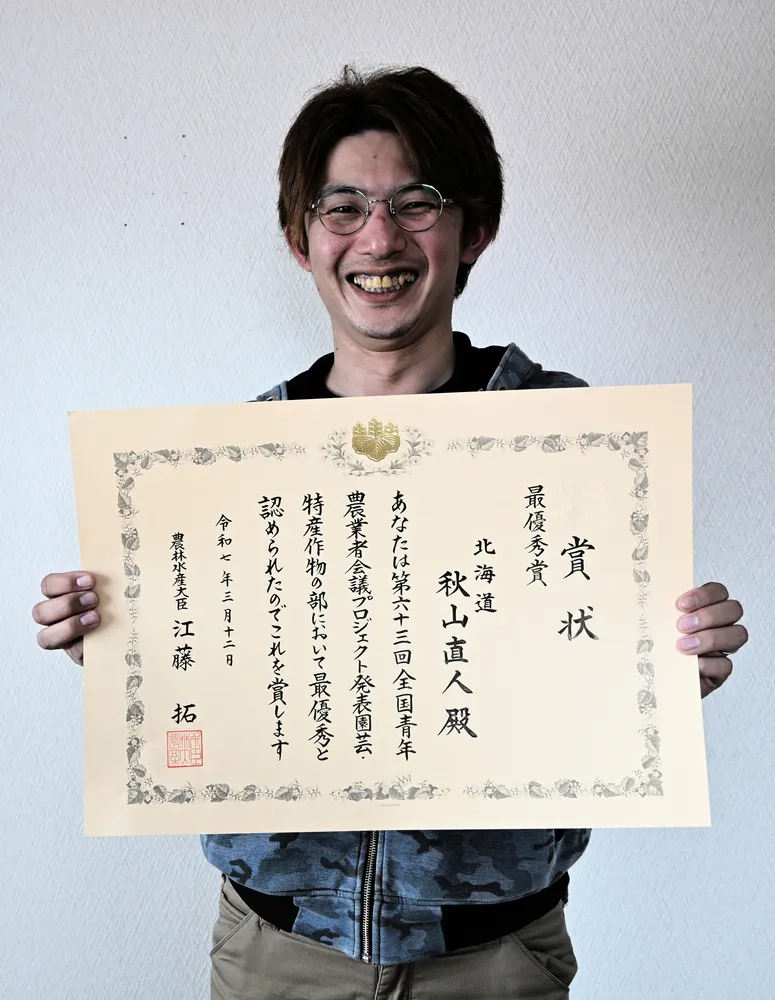 賞状
最優秀賞
北海道
秋山直人殿
あなたは第六十三回全国青年
農業者会議プロジェクト発表園芸・
特産作物の部において最優秀と
認められたのでこれを賞します
令和七年三月十二日
農林水産大臣 江藤 拓